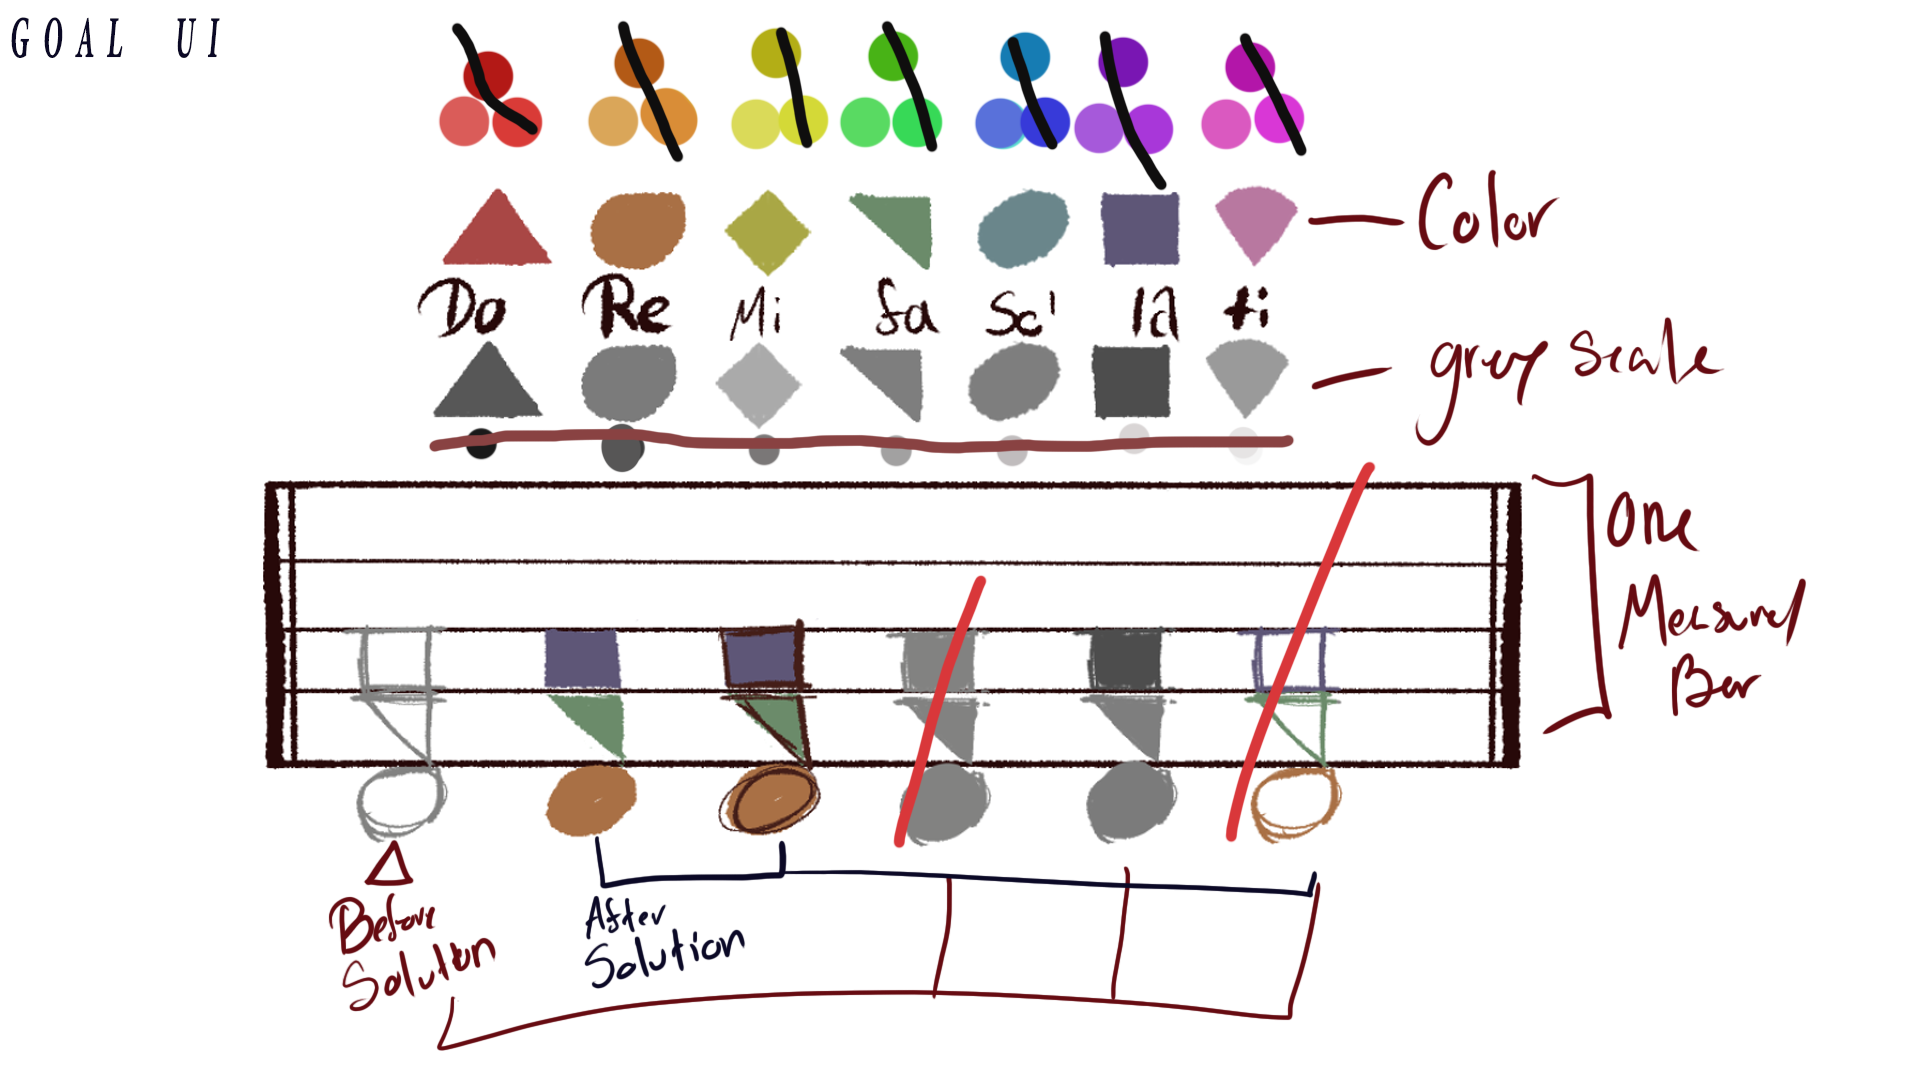 GOAL UI
Color
Do Re Mi fa So' la ti
grey scale
One
Measured
Bar
Before
Solution
After
Solution